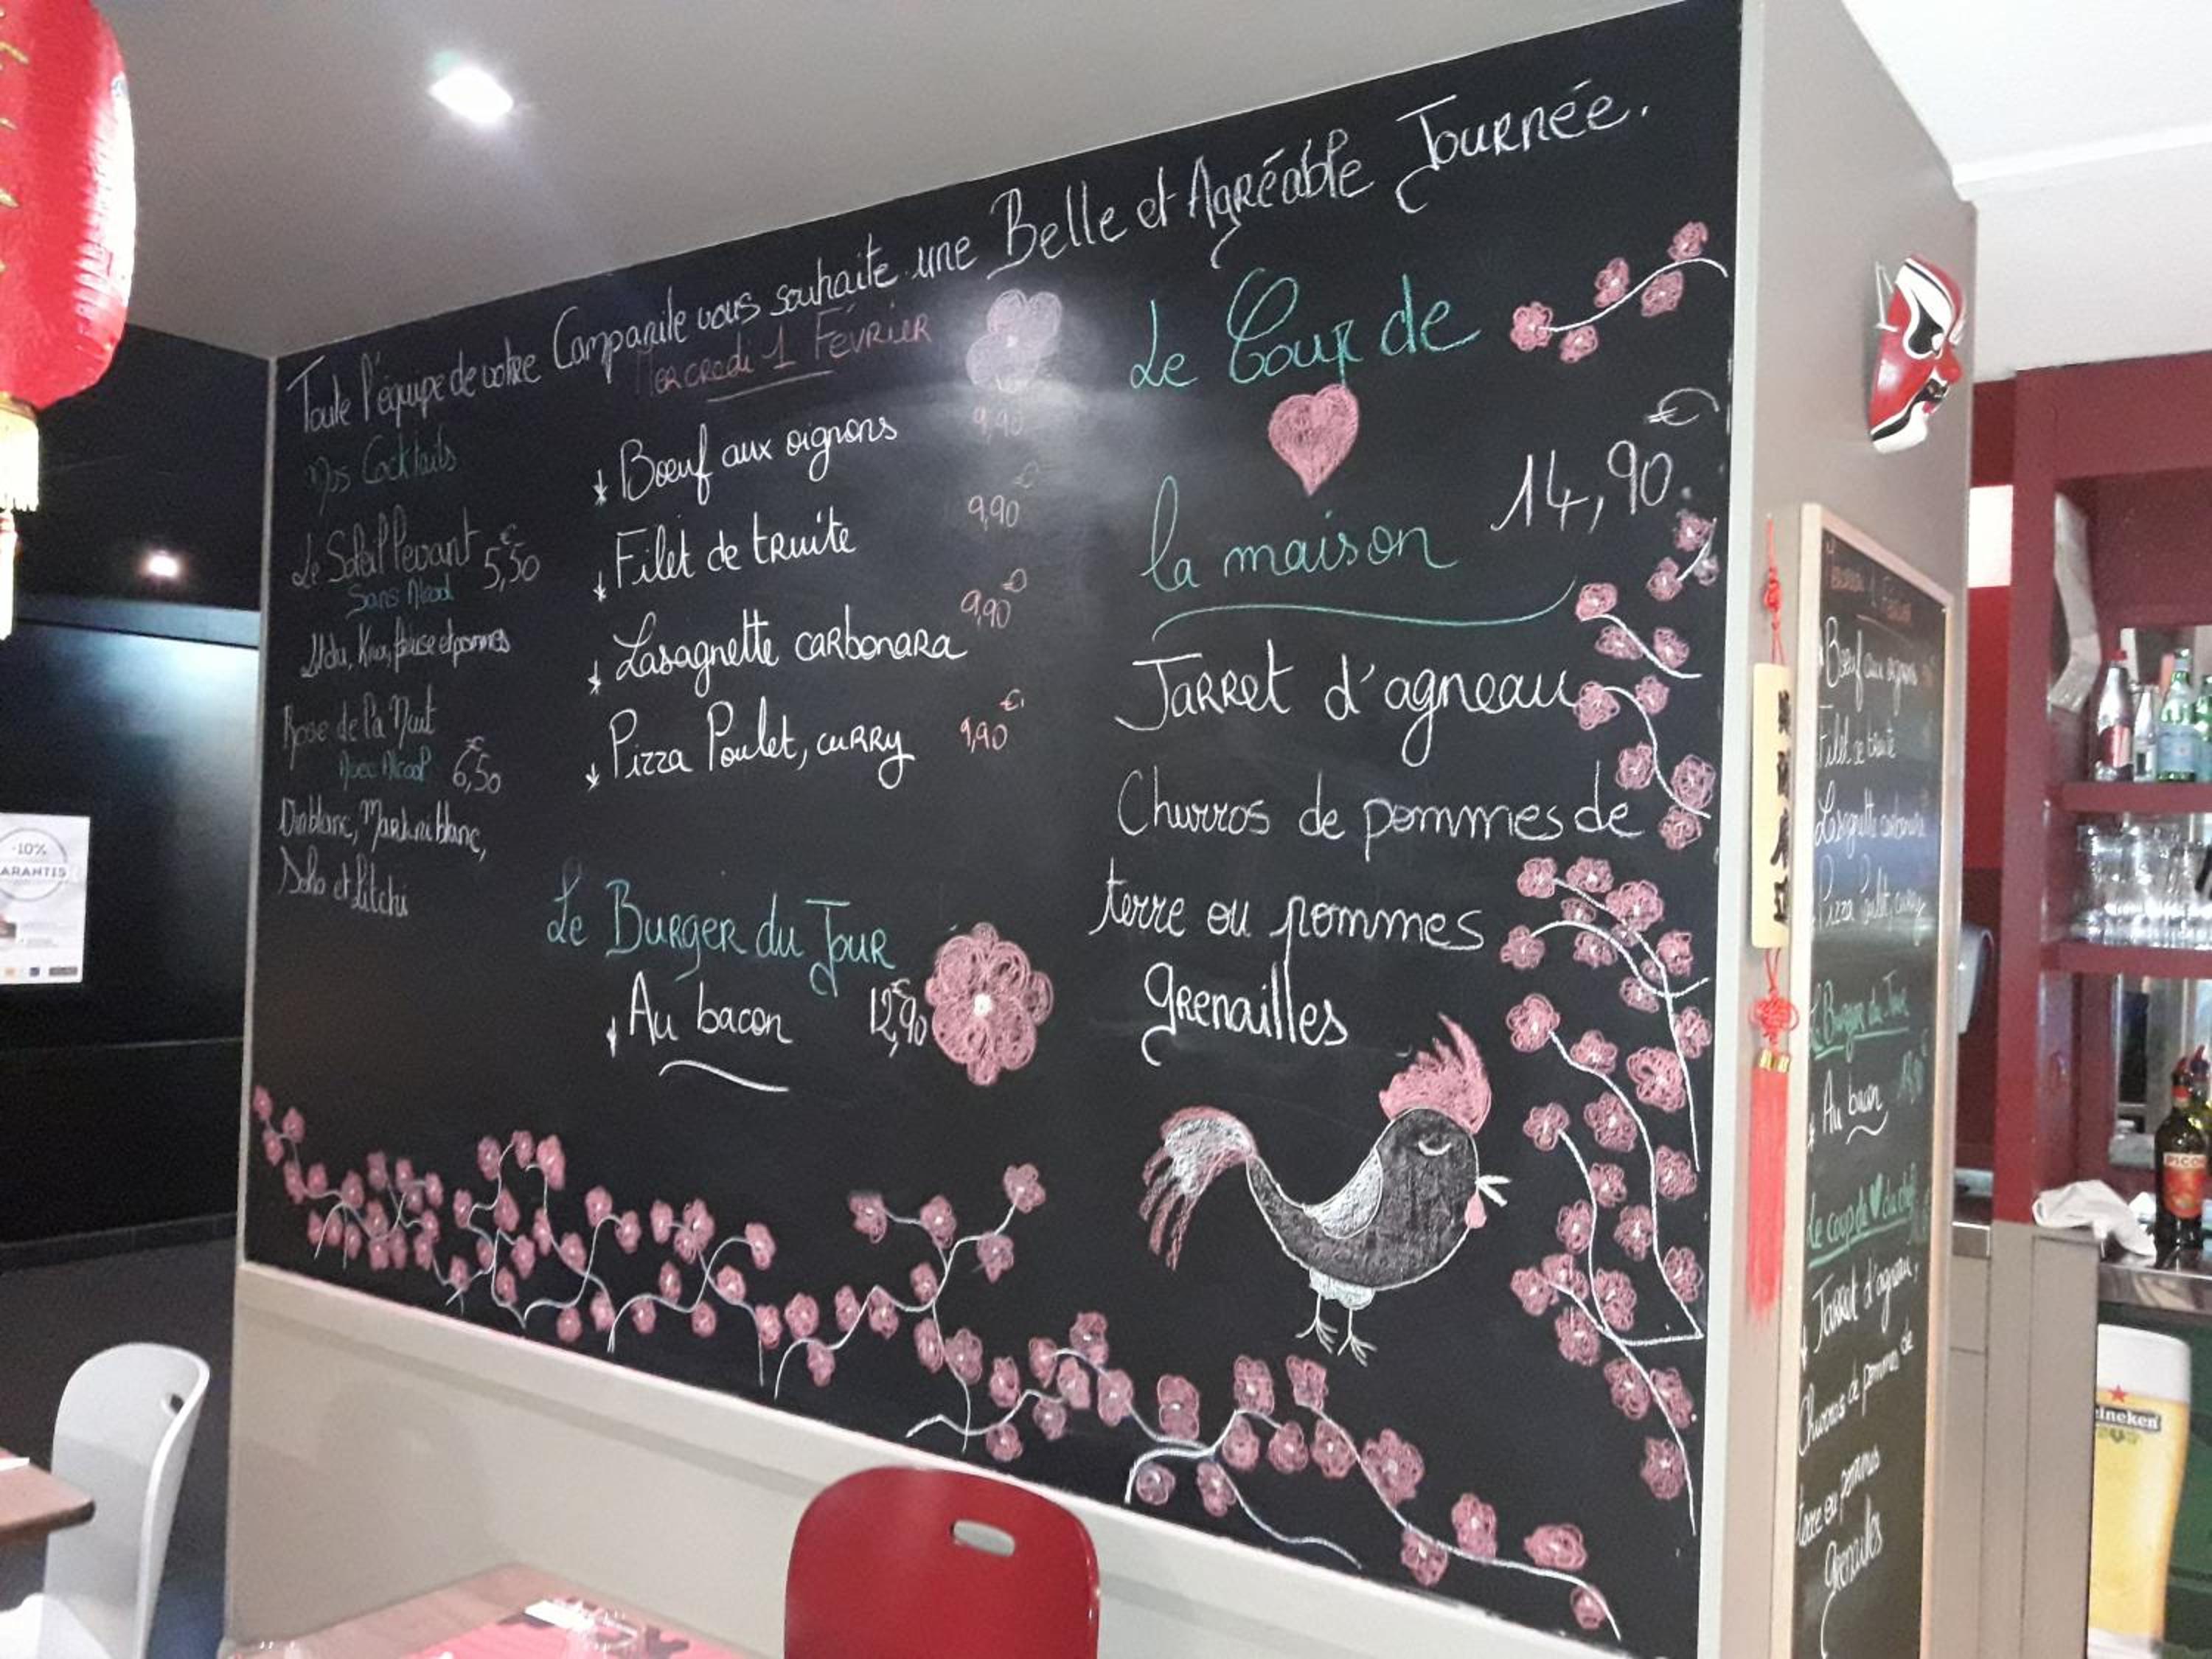 Toute l'équipe de votre Campanile vous souhaite une Belle et Agréable Journée.
Mercredi 1 Février
Nos Cocktails
Le Soleil Levant 5,50€
Sans Alcool
Rose de la Nuit
Avec Alcool 6,50€
Martini blanc,
Soho et Litchi
Bœuf aux oignons 9,90
Filet de truite 9,90€
Lasagnette carbonara 9,90€
Pizza Poulet, curry 9,90€
Le Burger du Jour
Au bacon 12,90€
Le Coup de
la maison 14,90€
Jarret d'agneau
Churros de pommes de
terre ou pommes
grenailles
1 Février
Bœuf aux oignons
Filet de truite
Lasagnette carbonara
Pizza Poulet, curry
Le Burger du Jour
Au bacon
Le coup de du chef
Jarret d'agneau,
Churros de pommes de
terre ou pommes
grenailles
-10%
ARANTIS
PICON
eineken